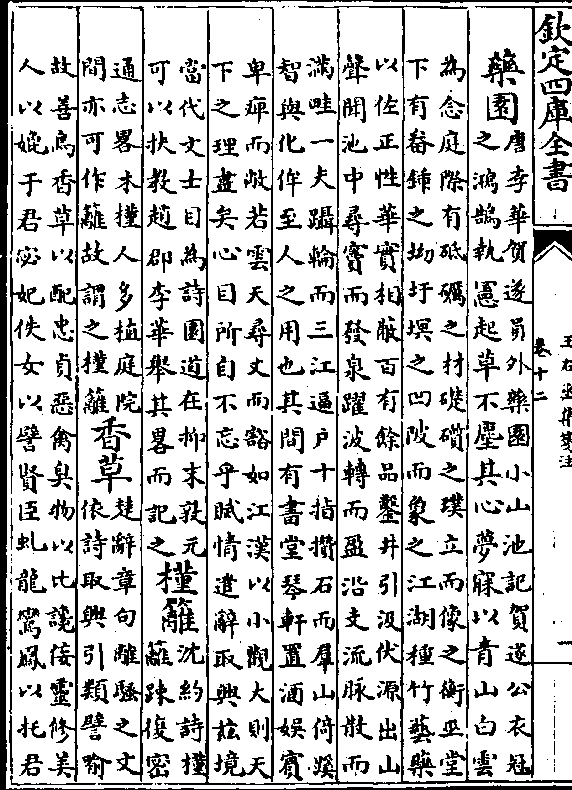 欽定四庫全書
王右丞集箋注
卷十二
一
藥園
唐李華賀遂員外藥園小山池記賀遂公衣冠
之鴻鵠執憲起草不塵其心夢寐以青山白雲
為念庭際有砥礪之材礎礩之璞立而像之衡巫堂
下有畚鍤之坳圩塓之凹陂而象之江湖種竹藝藥
以佐正性華實相蔽百有餘品鑿井引汲伏源出山
聲聞池中尋竇而發泉躍波轉而盈沿支流脉散而
滿畦一夫躡輪而三江逼户十指攢石而羣山倚蹊
智與化侔至人之用也其間有書堂琴軒置酒娛賓
卑痺而敞若雲天尋丈而豁如江漢以小觀大則天
下之理盡矣心目所自不忘乎賦情遣辭取興茲境
當代文士目為詩園道在抑末敦元
可以扶教趙郡李華舉其畧而記之
槿籬
沈約詩槿
籬踈復密
通志畧木槿人多植庭院
間亦可作籬故謂之槿籬
香草
楚辭章句離騷之文
依詩取興引類譬喻
故善鳥香草以配忠貞惡禽臭物以比讒佞靈修美
人以媲于君宓妃佚女以譬賢臣虬龍鸞鳳以托君